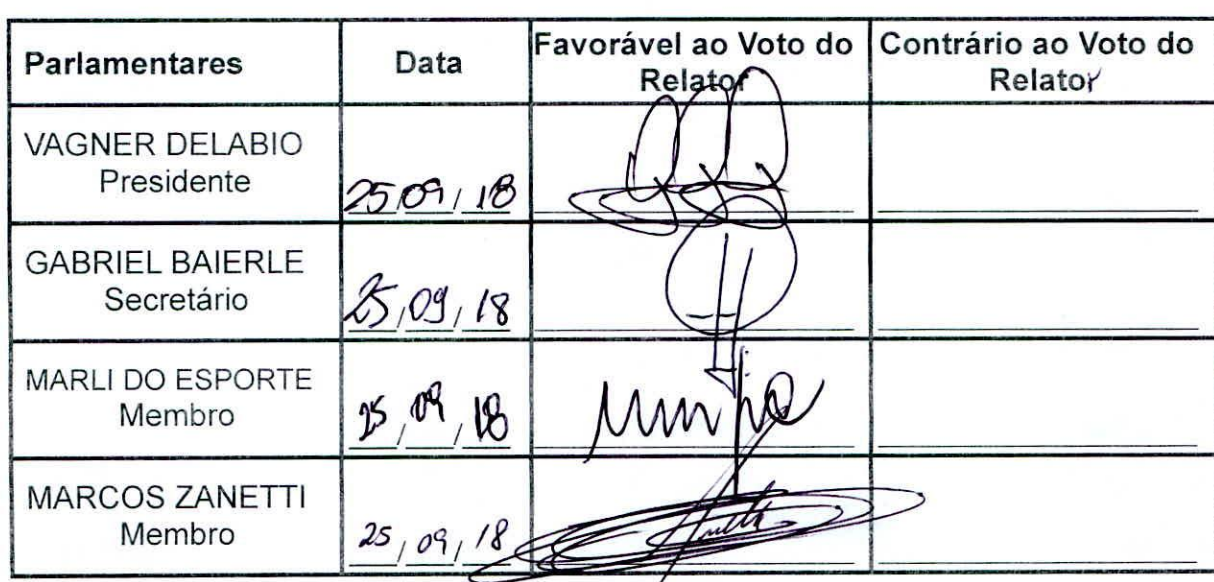 Parlamentares Data Favorável ao Voto do Relator Contrário ao Voto do Relator
VAGNER DELABIO
Presidente 25/09/18
GABRIEL BAIERLE
Secretário 25/09/18
MARLI DO ESPORTE
Membro 25/09/18
MARCOS ZANETTI
Membro 25/09/18